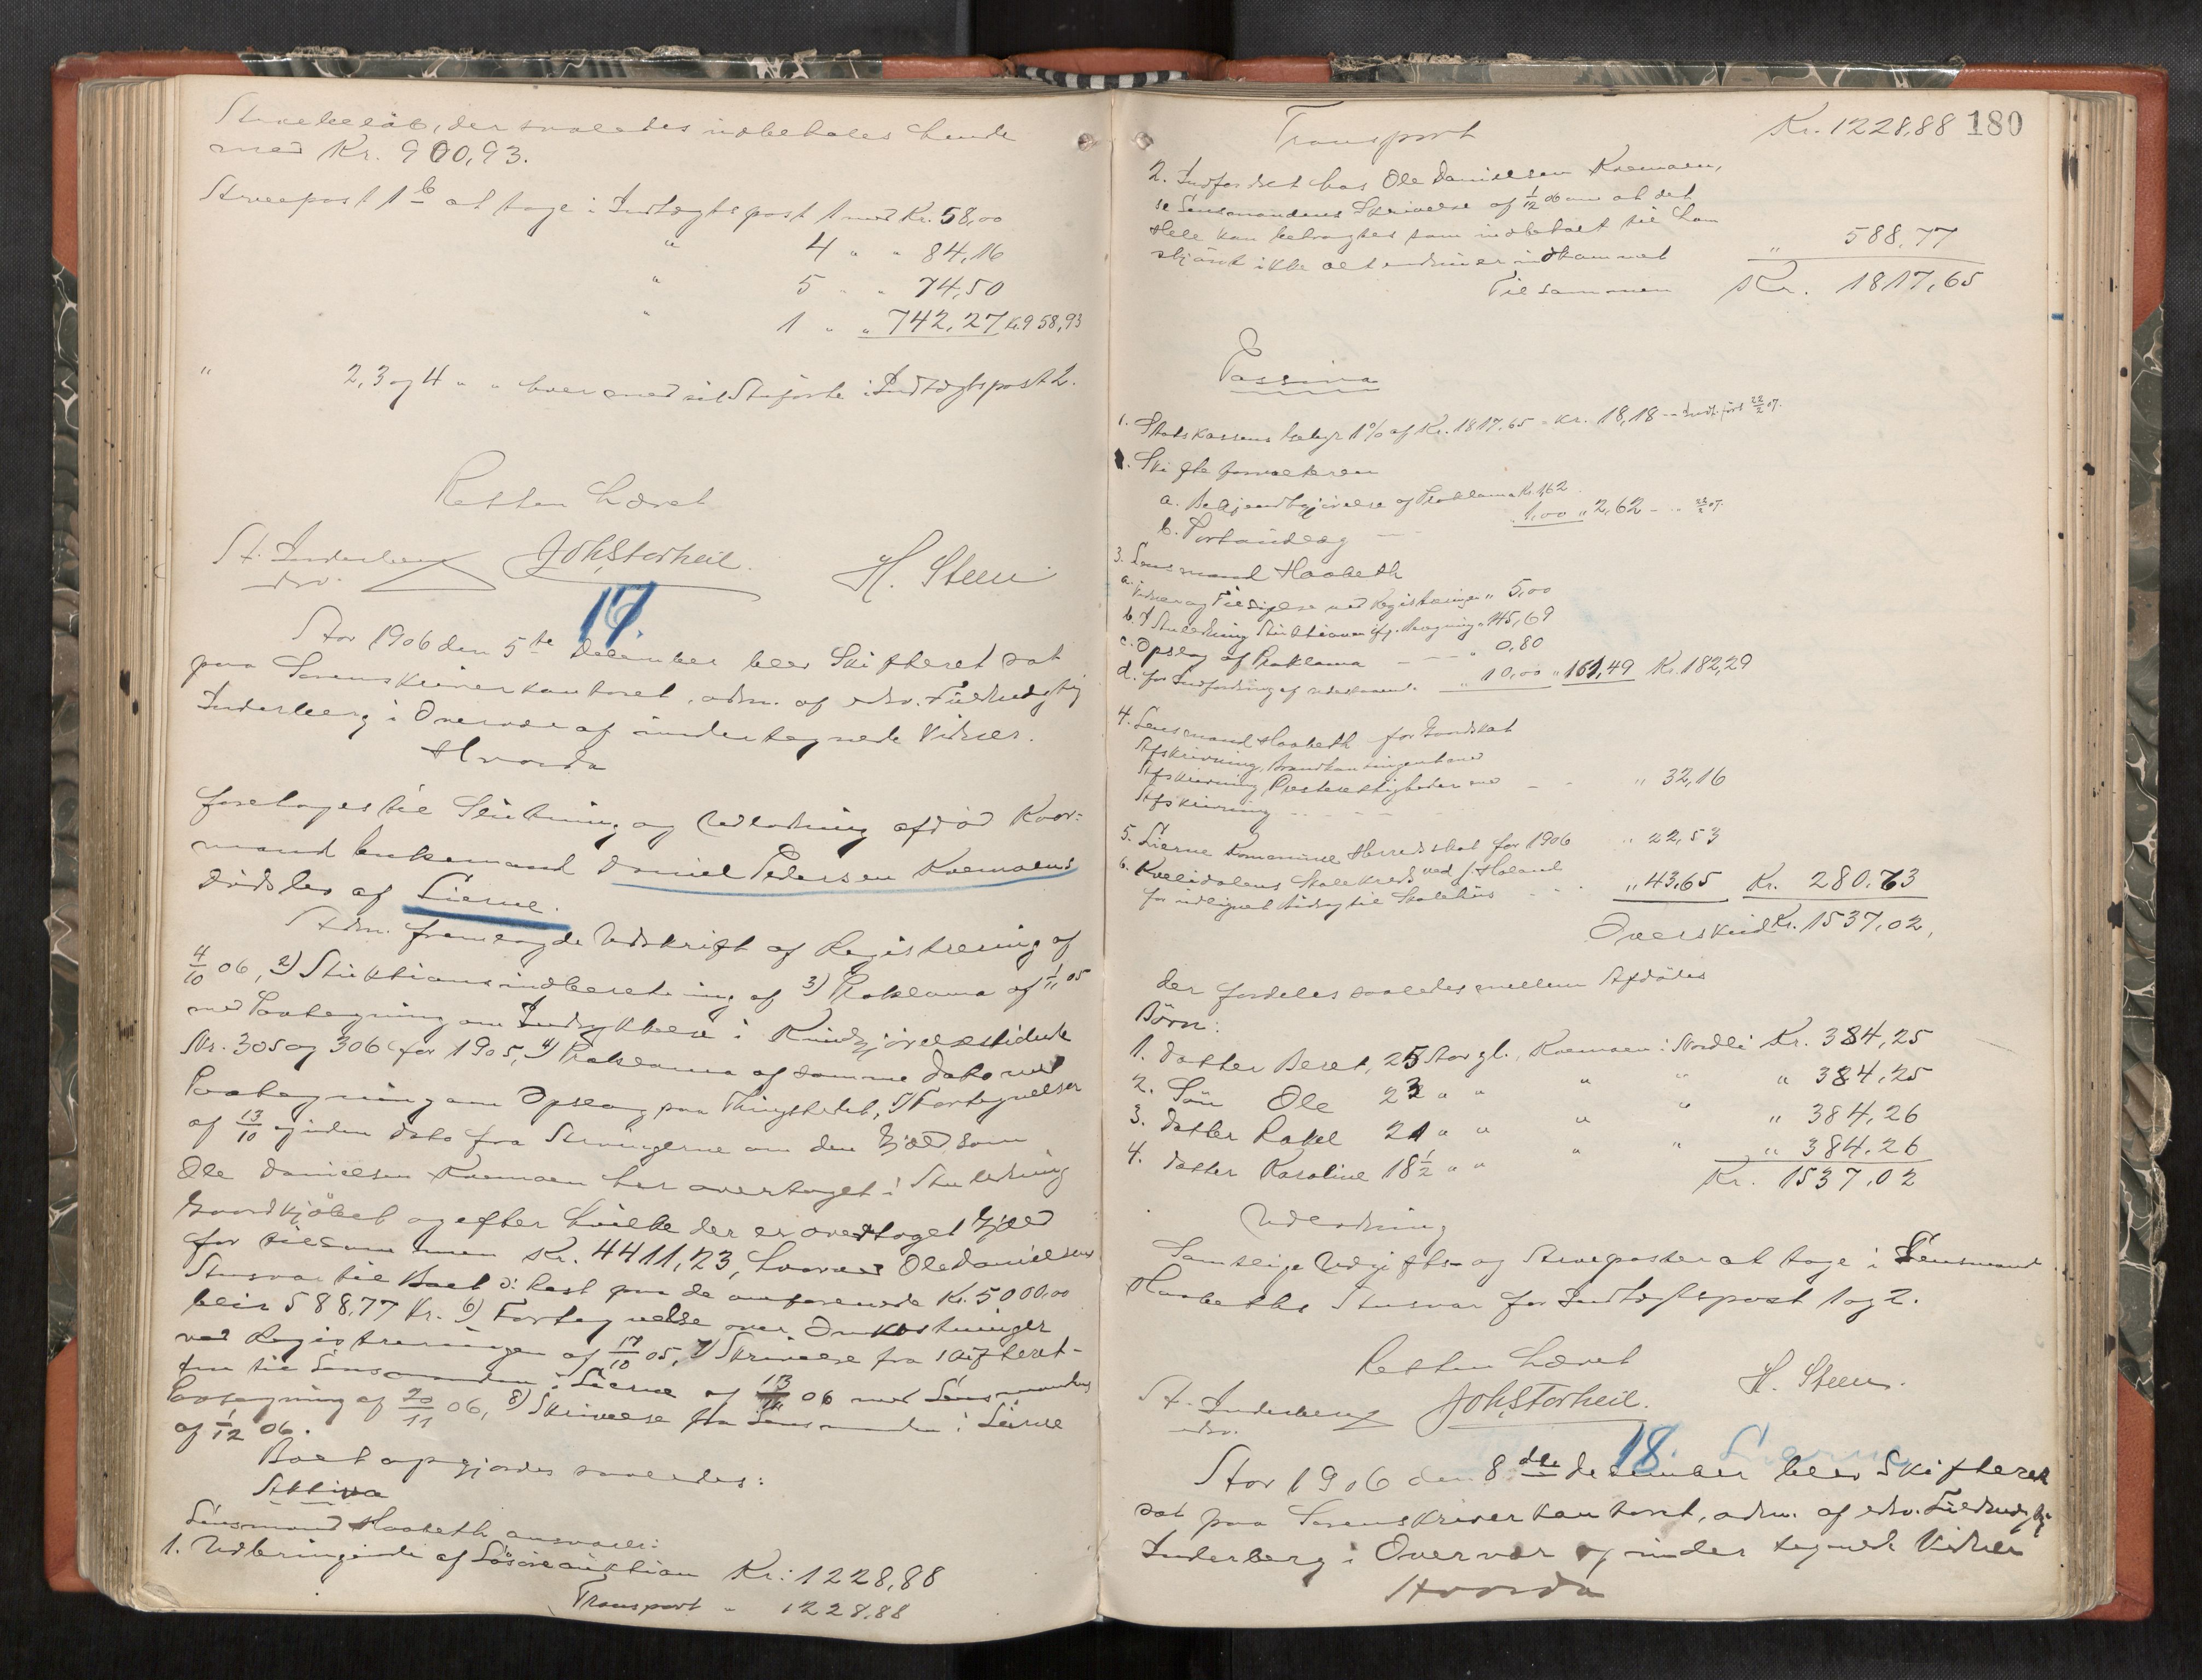 Arvebeløb, der saaledes udbetales hende
med Kr. 900,93.
Arvepost 1 b at tage i Indtægtspost 1 med Kr. 58,00
" 4 " " 84,16
" 5 " " 74,50
" 1 " " 742,27 Kr. 958,93
" 2, 3 og 4 " " hver med sit Anførte i Indtægtspost 2.
Retten hævet
A. Inderberg Joh. Storheil. H. Steen
edsv.
17.
Aar 1906 den 5te December blev Skifteret sat
paa Sorenskriverkontoret, adm. af edsv. Fuldmægtig
Inderberg i Overvær af undertegnede Vidner.
Hvorda
foretoges til Slutning og Udlodning afdød Kaar-
mand Enkemand Daniel Pedersen Kvemoens
Dødsbo af Lierne.
Adm. fremlagde Udskrift af Registrering af
4/10 06, 2) Auktionsindberetning af 3) Proklama af 1/11 05
med Paategning om Indrykkelse i Kundgjørelsestidende
Nr. 305 og 306 for 1905, 4) Proklama af samme Dato med
Paategning om Opslag paa Thingstedet, 5) Fortegnelser
af 13/10 og uden Dato fra Arvingerne om den Gjæld som
Ole Danielsen Kvemoen har overtaget i Anledning
Gaardkjøbet og efter hvilke der er overtaget Gjæld
for tilsammen Kr. 4411,23, hvorved Ole Danielsens
Ansvar til Boet ɔ: Rest paa de omforenede Kr. 5000,00
bliv 588,77 Kr. 6) Fortegnelse over Omkostninger
ved Registreringen af 17/10 05, 7) Skrivelse fra Skifteret-
ten til Lensmanden i Lierne af 13/11 06 med Lensmandens
Paategning af 20/11 06, 8) Skrivelse fra Lensmanden i Lierne
af 1/12 06.
Boet opgjordes saaledes:
Aktiva
Lensmand Haabeth ansvarer:
1. Udbringende af Løsøreauktion Kr. 1228,88
Transport " 1228,88
Transport Kr. 1228,88 180
2. Indfordret hos Ole Danielsen Kvemoen,
se Lensmandens Skrivelse af 1/12 06 om at det
Hele kan betragtes som indbetalt til ham
skjønt ikke alt endnu er indkommet " 588,77
Tilsammen Kr. 1817,65
Passiva
1. Statskassens Gebyr 1% af Kr. 1817,65 - Kr. 18,18 - Indt. ført 22/2 07.
2. Skifteforvalteren
a. Bekjendtgjørelse af Proklama Kr. 1,62
b. Portoudlæg 1,00 " 2,62 - " 22/2 07.
3. Lensmand Haabeth
a. Vidner og Tilsigelse ved Registreringen " 5,00
b. I Anledning Auktionen ifg. Regning " 145,69
c. Opslag af Proklama " 0,80
d. for Indfordring af udestaaende " 10,00 " 161,49 Kr. 182,29
4. Lensmand Haabeth for Landskat
Afskrivning, Brandkontingent med
Afskrivning, Presterettigheder med
Afskrivning " 32,16
5. Lierne Kommune Herredsskat for 1906 " 22,53
6. Kvelidalens Skolekreds ved J. Haland
for udlignet Bidrag til Skolehus " 43,65 Kr. 280,63
Overskud Kr. 1537,02,
der fordeles saaledes mellem Afdødes
Børn:
1. Datter Beret, 25 Aar gl., Kvemoen i Nordli Kr. 384,25
2. Søn Ole 23 " " " " " 384,25
3. Datter Rakel 21 " " " " " 384,26
4. Datter Karoline 18 1/2 " " " " " 384,26
Kr. 1537,02
Udlodning
Samtlige Udgifts- og Arveposter at tage i Lensmand
Haabeths Ansvar for Indtægtspost 1 og 2.
Retten hævet
A. Inderberg Joh. Storheil. H. Steen.
edsv.
18. Lierne
Aar 1906 den 8de December blev Skifteret
sat paa Sorenskriverkontoret, adm. af edsv. Fuldmægtig
Inderberg i Overvær af undertegnede Vidner
Hvorda